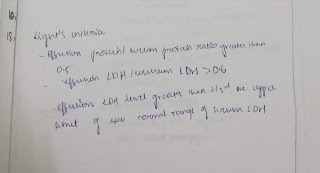 18.
Light's criteria
- Effusion protein/serum protein ratio greater than
0.5
- effusion LDH/serum LDH > 0.6
- effusion LDH level greater than 2/3rd the upper
limit of normal range of serum LDH